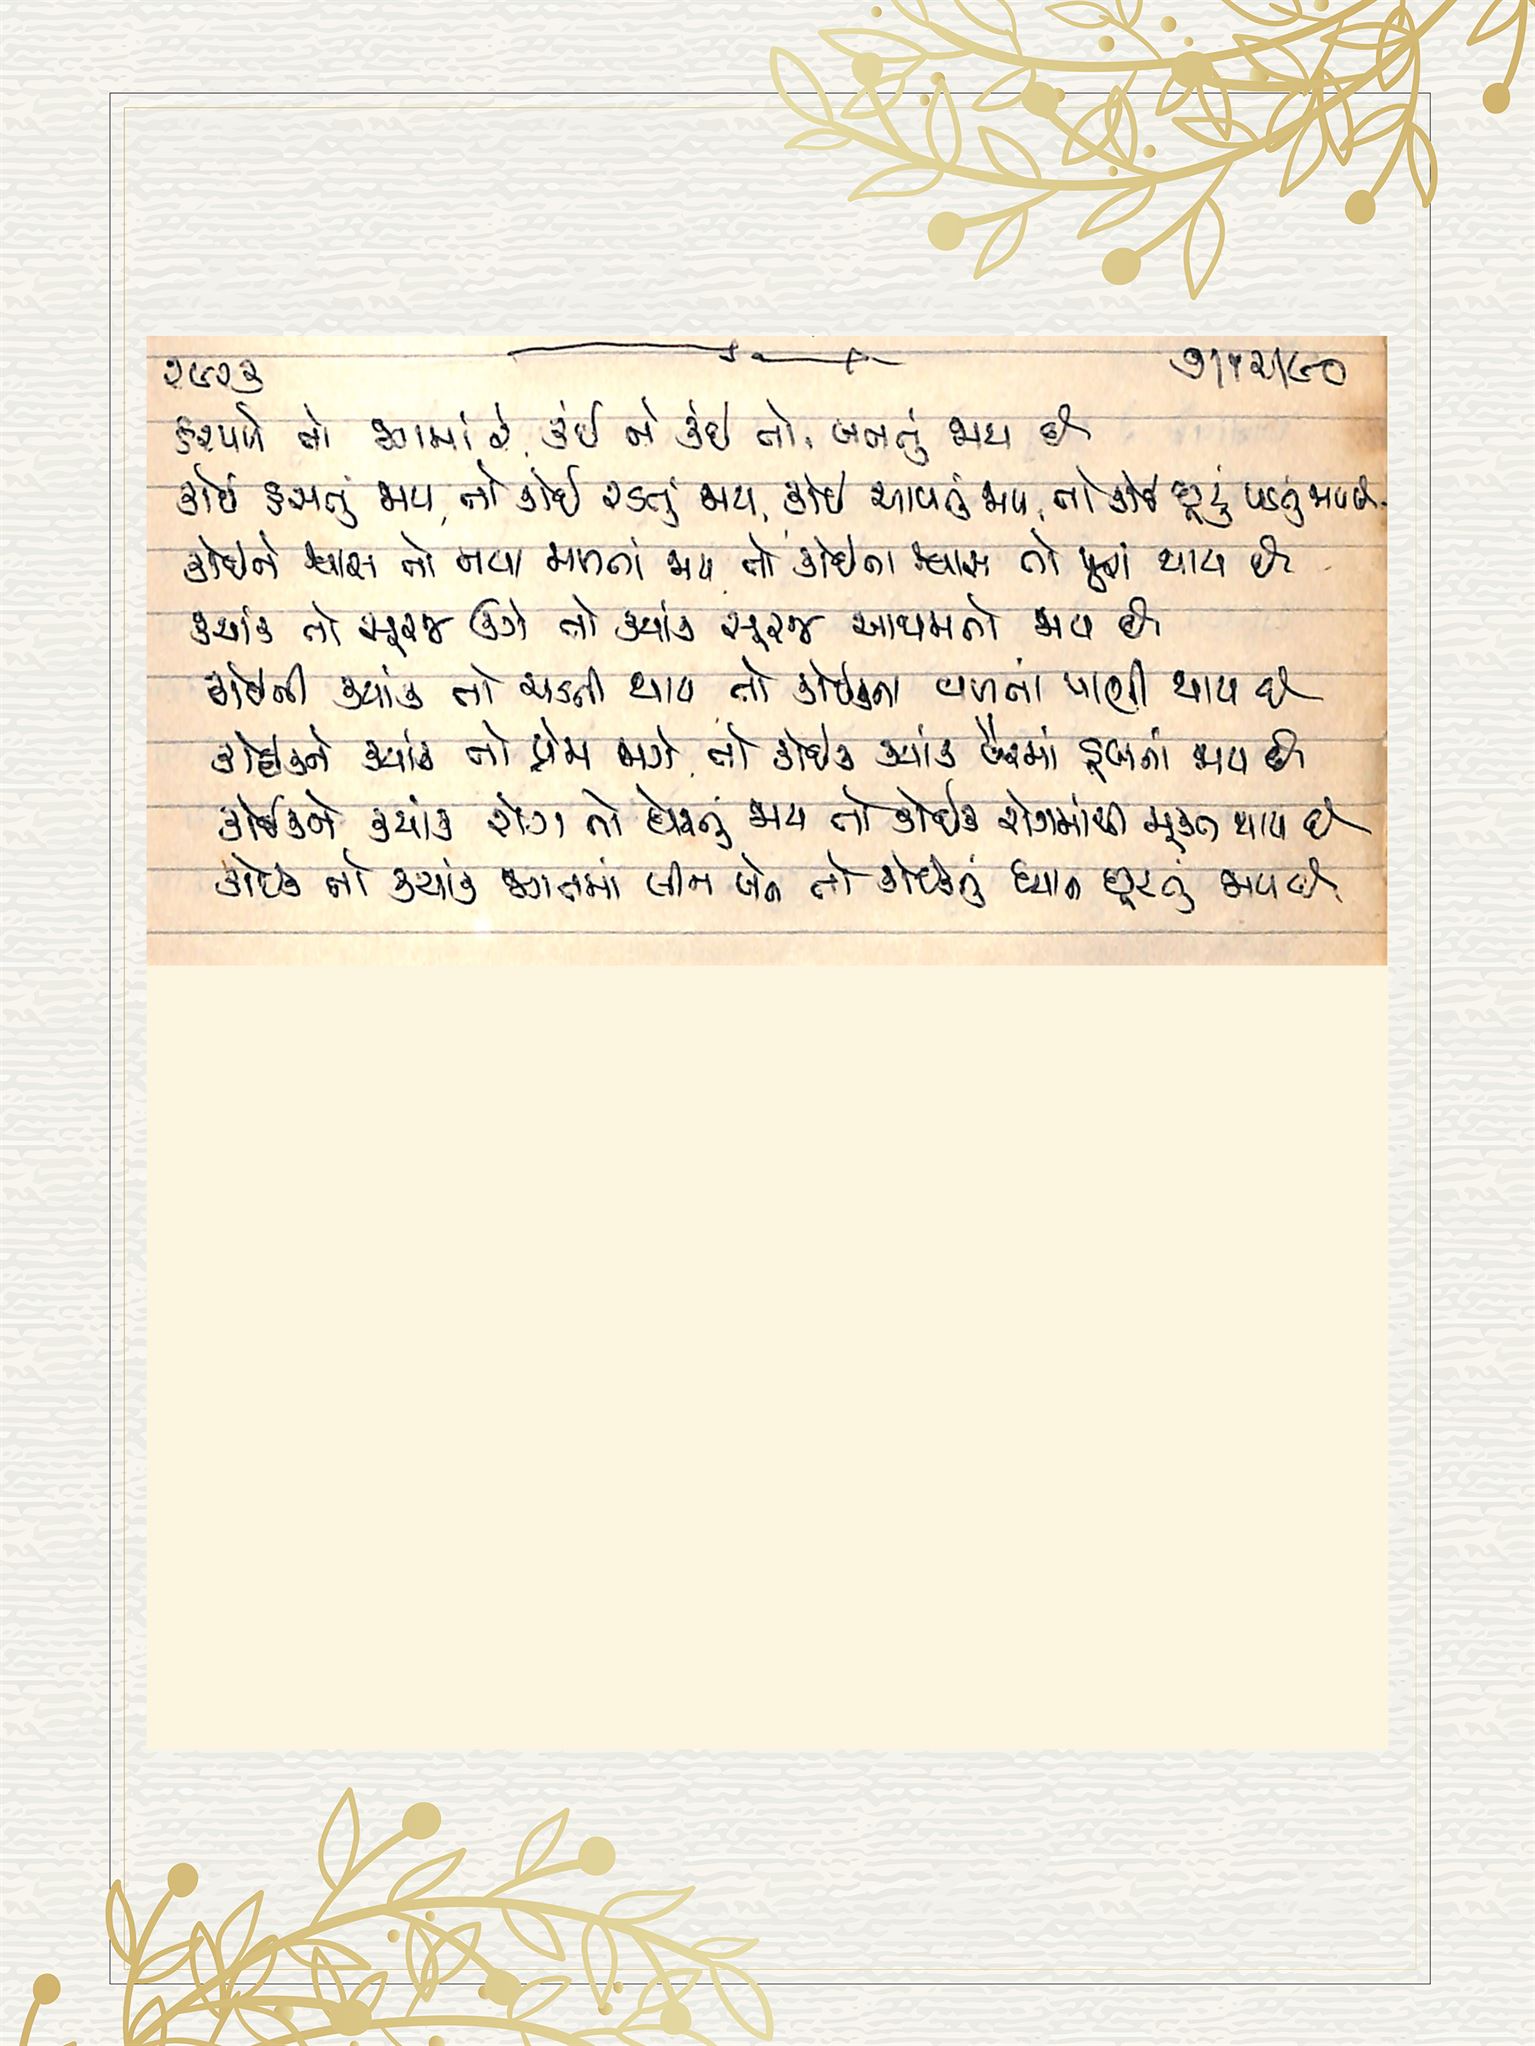 ૨૯૨૩ ૭/૧૨/૯૦
હરપળે તો જગમાં રે, કંઈ ને કંઈ તો, બનતું જાય છે
કોઈ હસતું જાય, તો કોઈ રડતું જાય, કોઈ આવતું જાય, તો કોઈ છૂટું પડતું જાય છે
કોઈને શ્વાસ તો નવા મળતાં જાય તો કોઈના શ્વાસ તો પૂરાં થાય છે
ક્યાંક તો સૂરજ ઉગે તો ક્યાંક સૂરજ આથમતો જાય છે
કોઈની ક્યાંક તો ચડતી થાય તો કોઈકના વળતાં પાણી થાય છે
કોઈકને ક્યાંક તો પ્રેમ જાગે, તો કોઈક ક્યાંક વૈરમાં ડૂબતાં જાય છે
કોઈકને ક્યાંક રોગ તો ઘેરતું જાય તો કોઈક રોગમાંથી મૂક્ત થાય છે
કોઈક તો ક્યાંક જગતમાં લીન બને તો કોઈકનું ધ્યાન છૂટતું જાય છે